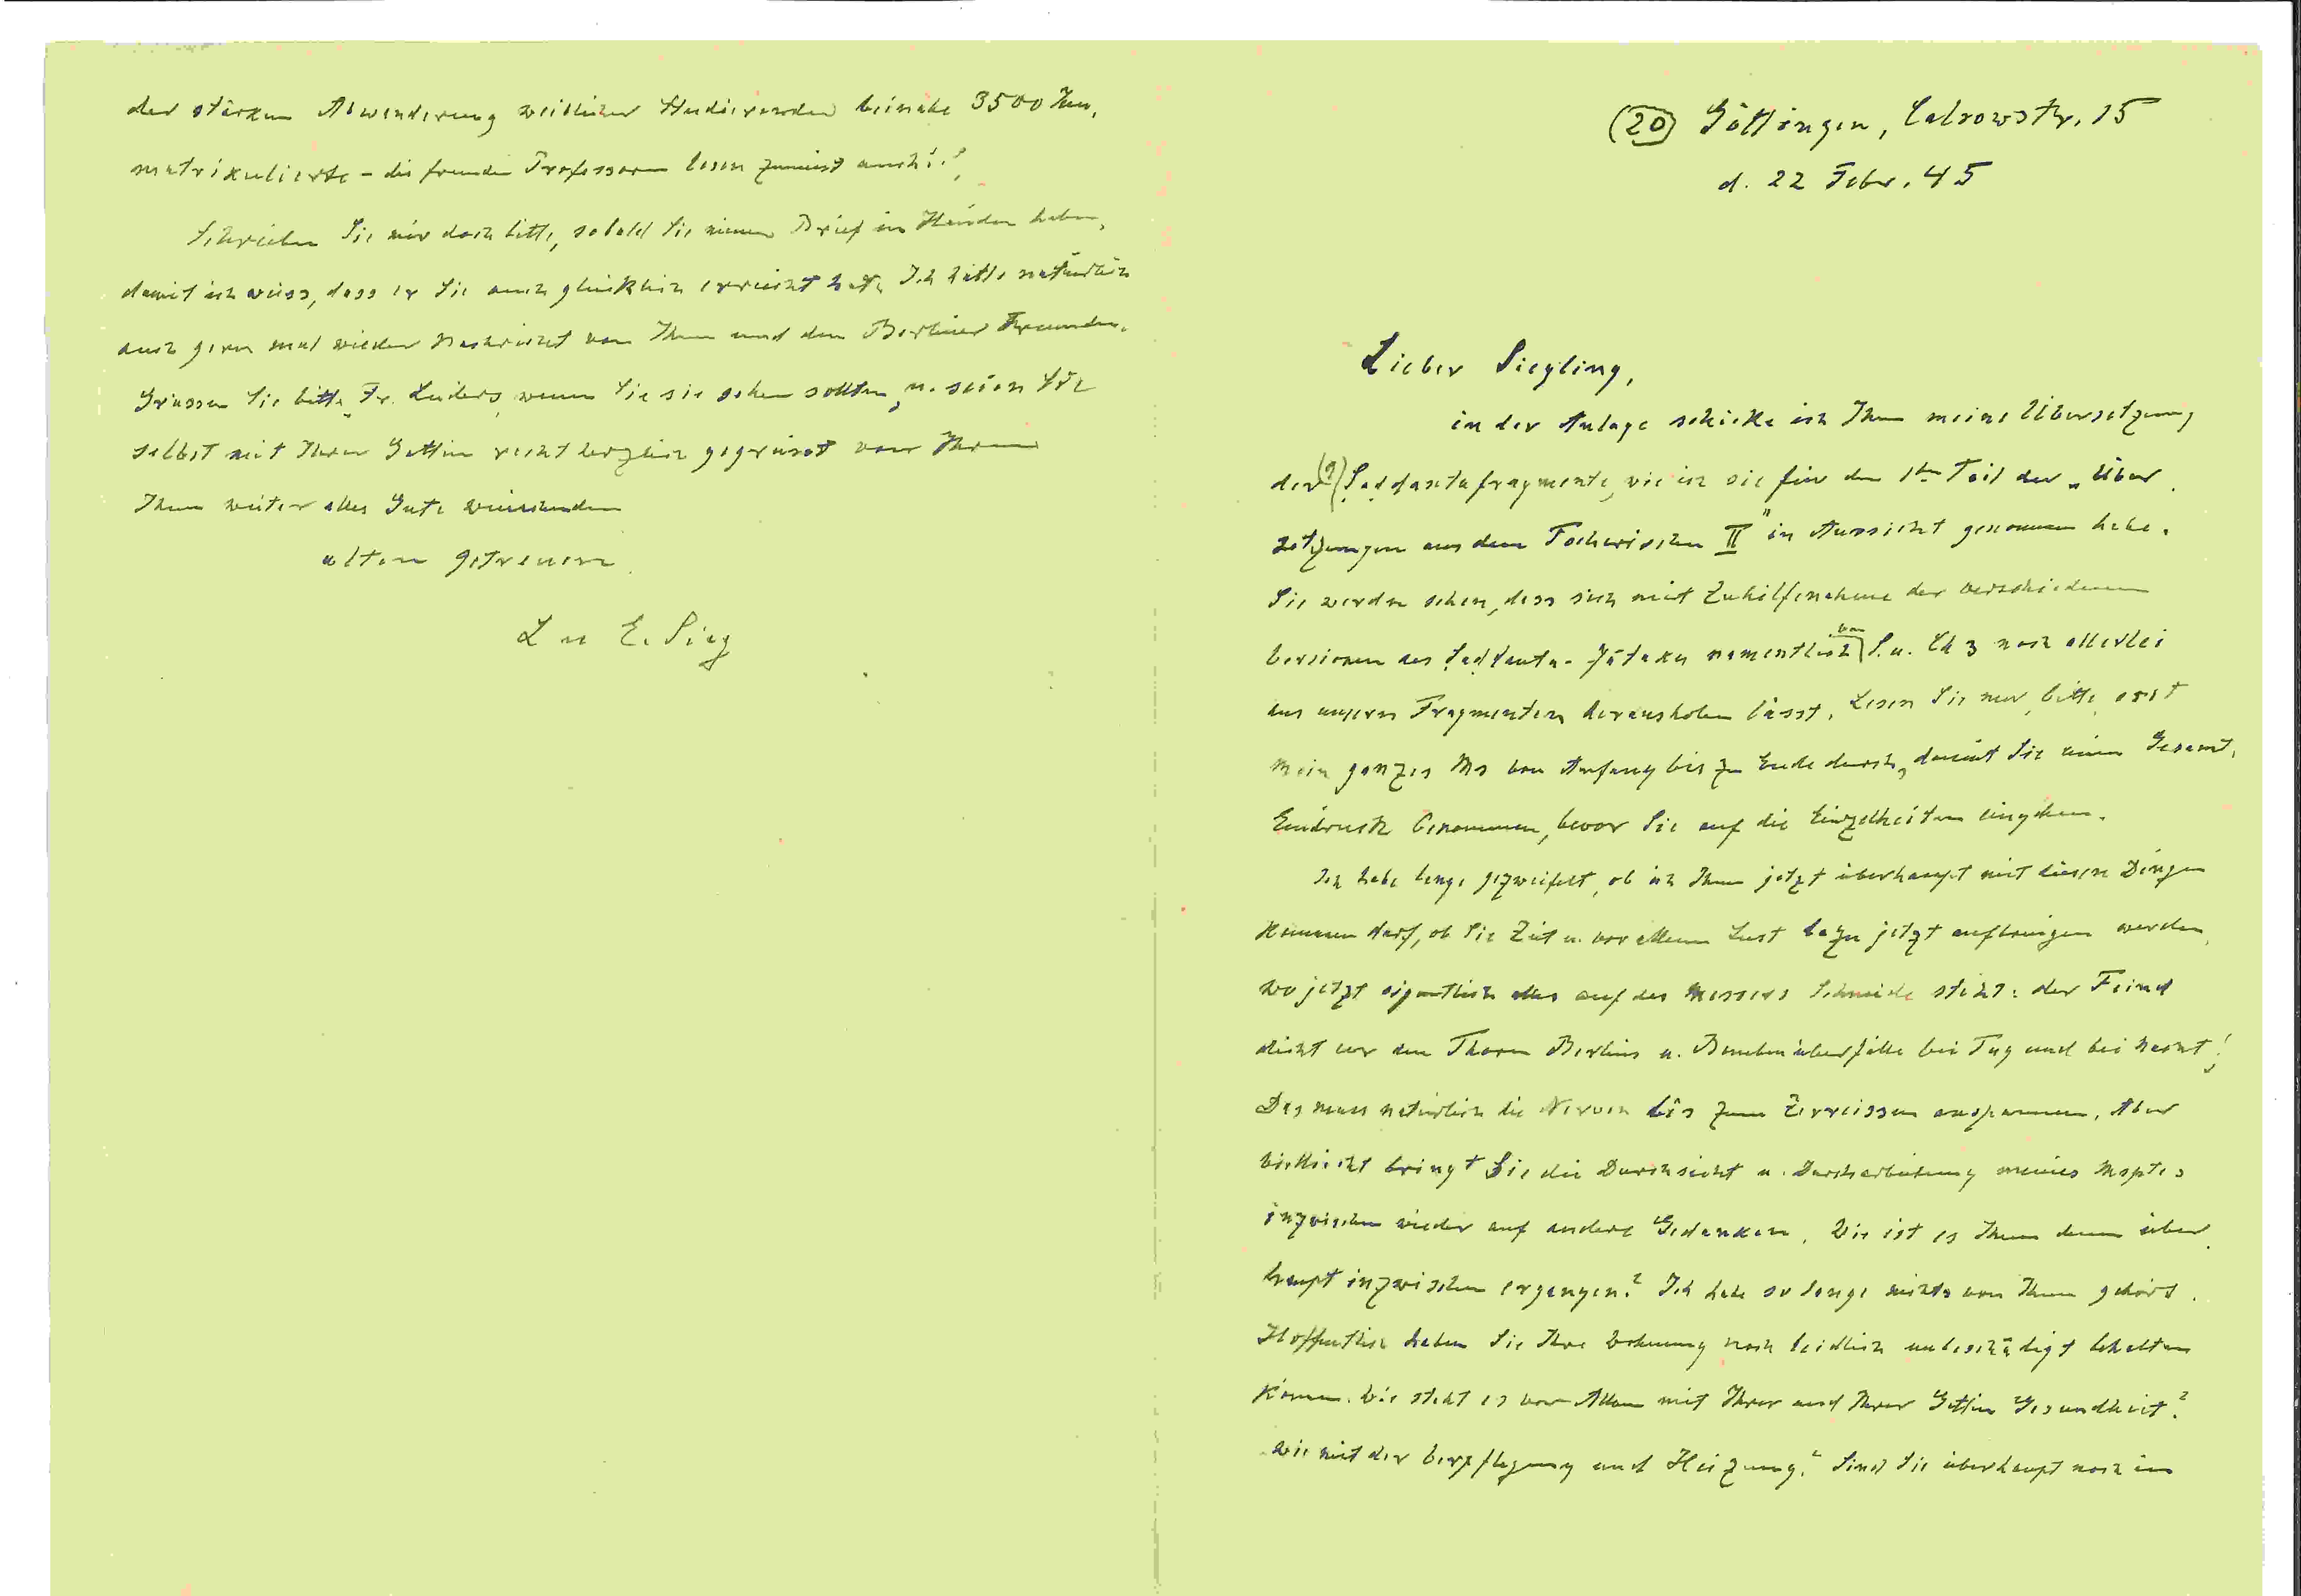 (20) Göttingen, Calsowstr. 15
d. 22 Febr. 45
Lieber Siegling,
in der Anlage schicke ich Ihnen meine Übersetzung
der (?) Ṣaḍdantafragmente, wie ich sie für den 1ten Teil der „Über
setzungen aus dem Tocharischen II" in Aussicht genommen habe.
Sie werden sehen, dass sich mit Zuhilfenahme der verschiedenen
Versionen des Ṣaḍdanta-Jātakas namentlich von S. u. Ch 3 noch allerlei
aus unsern Fragmenten herausholen lässt. Lesen Sie nur, bitte, erst
mein ganzes Ms von Anfang bis zu Ende durch, damit Sie einen Gesamt-
Eindruck bekommen, bevor Sie auf die Einzelheiten eingehen.
Ich habe lange gezweifelt, ob ich Ihnen jetzt überhaupt mit diesen Dingen
kommen darf, ob Sie Zeit u. vor allem Lust dazu jetzt aufbringen werden,
wo jetzt eigentlich alles auf des Messers Schneide steht: der Feind
dicht vor den Thoren Berlins u. Bombenüberfälle bei Tag und bei Nacht!
Das muss natürlich die Nerven bis zum Zerreissen anspannen. Aber
vielleicht bringt Sie die Durchsicht u. Durcharbeitung meines Mspts
inzwischen wieder auf andere Gedanken. Wie ist es Ihnen denn über
haupt inzwischen ergangen? Ich habe so lange nichts von Ihnen gehört.
Hoffentlich haben Sie Ihre Wohnung noch leidlich unbeschädigt behalten
können. Wie steht es vor Allem mit Ihrer und Ihrer Gattin Gesundheit?
wie mit der Verpflegung und Heizung? Sind Sie überhaupt noch in
der starken Abwanderung weiblicher Studierenden beinahe 3500 Im-
matrikulierte – die fremden Professoren lesen zumeist auch!
Schreiben Sie mir doch bitte, sobald Sie meinen Brief in Händen haben,
damit ich weiss, dass er Sie auch glücklich erreicht hat. Ich hätte natürlich
auch gern mal wieder Nachricht von Ihnen und den Berliner Freunden.
Grüssen Sie bitte Fr. Lüders, wenn Sie sie sehen sollten, u. seien Sie
selbst mit Ihrer Gattin recht herzlich gegrüsst von Ihrem
Ihnen weiter alles Gute wünschenden
alten getreuen
E. Sieg